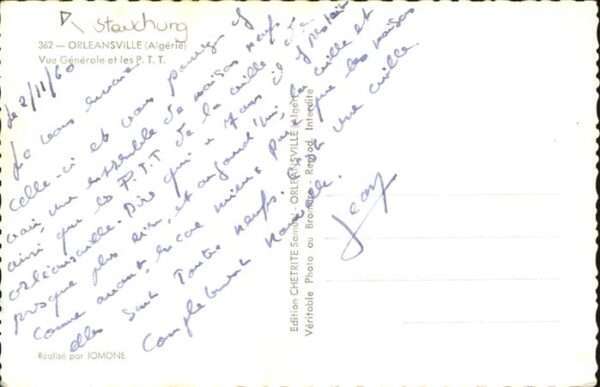 362 — ORLEANSVILLE (Algérie)
Vue Générale et les P. T. T.
le 2/11/60
Je vous envoie
celle-ci et vous pourrez y
voir, un ensemble de maisons neuves
ainsi que la P.T.T de la ville d'
orléansville. Dire qu'il y a 7 ans il
presque plus rien. et aujourd'hui, la ville est
comme avant, encore mieux puisque les maisons
elles sont toutes neuves. une ville
Complètement nouvelle.
Jean
Edition CHETRITE Samuel - ORLEANSVILLE (Algérie)
Véritable Photo au Bromure - Reprod. Interdite
Réalisé par JOMONE